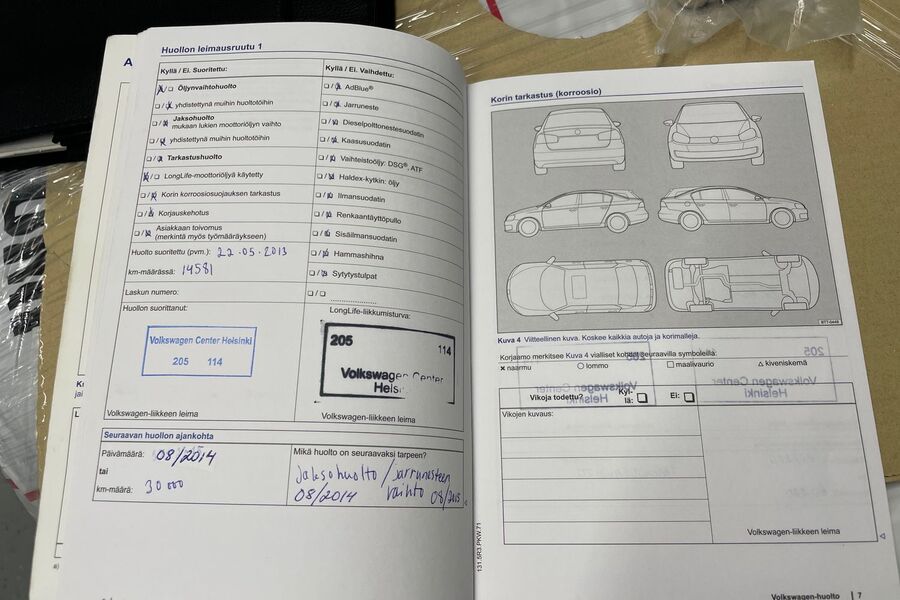 Huollon leimausruutu 1
Kyllä / Ei. Suoritettu:
Öljynvaihtohuolto
yhdistettynä muihin huoltotöihin
Jaksohuolto
mukaan lukien moottoriöljyn vaihto
yhdistettynä muihin huoltotöihin
Tarkastushuolto
LongLife-moottoriöljyä käytetty
Korin korroosiosuojauksen tarkastus
Korjauskehotus
Asiakkaan toivomus
(merkintä myös työmääräykseen)
Huolto suoritettu (pvm.): 22.05.2013
km-määrässä: 14581
Laskun numero:
Huollon suorittanut:
Volkswagen Center Helsinki
205 114
Volkswagen-liikkeen leima
Kyllä / Ei. Vaihdettu:
AdBlue®
Jarruneste
Dieselpolttonestesuodatin
Kaasusuodatin
Vaihteistoöljy: DSG®, ATF
Haldex-kytkin: öljy
Ilmansuodatin
Renkaantäyttöpullo
Sisäilmansuodatin
Hammashihna
Sytytystulpat
LongLife-liikkumisturva:
205 114
Volkswagen Center
Volkswagen-liikkeen leima
Seuraavan huollon ajankohta
Päivämäärä: 08/2014
tai
km-määrä: 30 000
Mikä huolto on seuraavaksi tarpeen?
Jaksohuolto / Jarrunesteen
08/2014 vaihto 08/2015
Korin tarkastus (korroosio)
BTT-0448
Kuva 4 Viitteellinen kuva. Koskee kaikkia autoja ja korimalleja.
Korjaamo merkitsee Kuva 4 vialliset kohdat seuraavilla symboleilla:
× naarmu ○ lommo □ maalivaurio △ kiveniskemä
Vikoja todettu? Kyl-
lä: Ei:
Vikojen kuvaus:
Volkswagen-liikkeen leima
131.5R3.PKW.71
Volkswagen-huolto 7